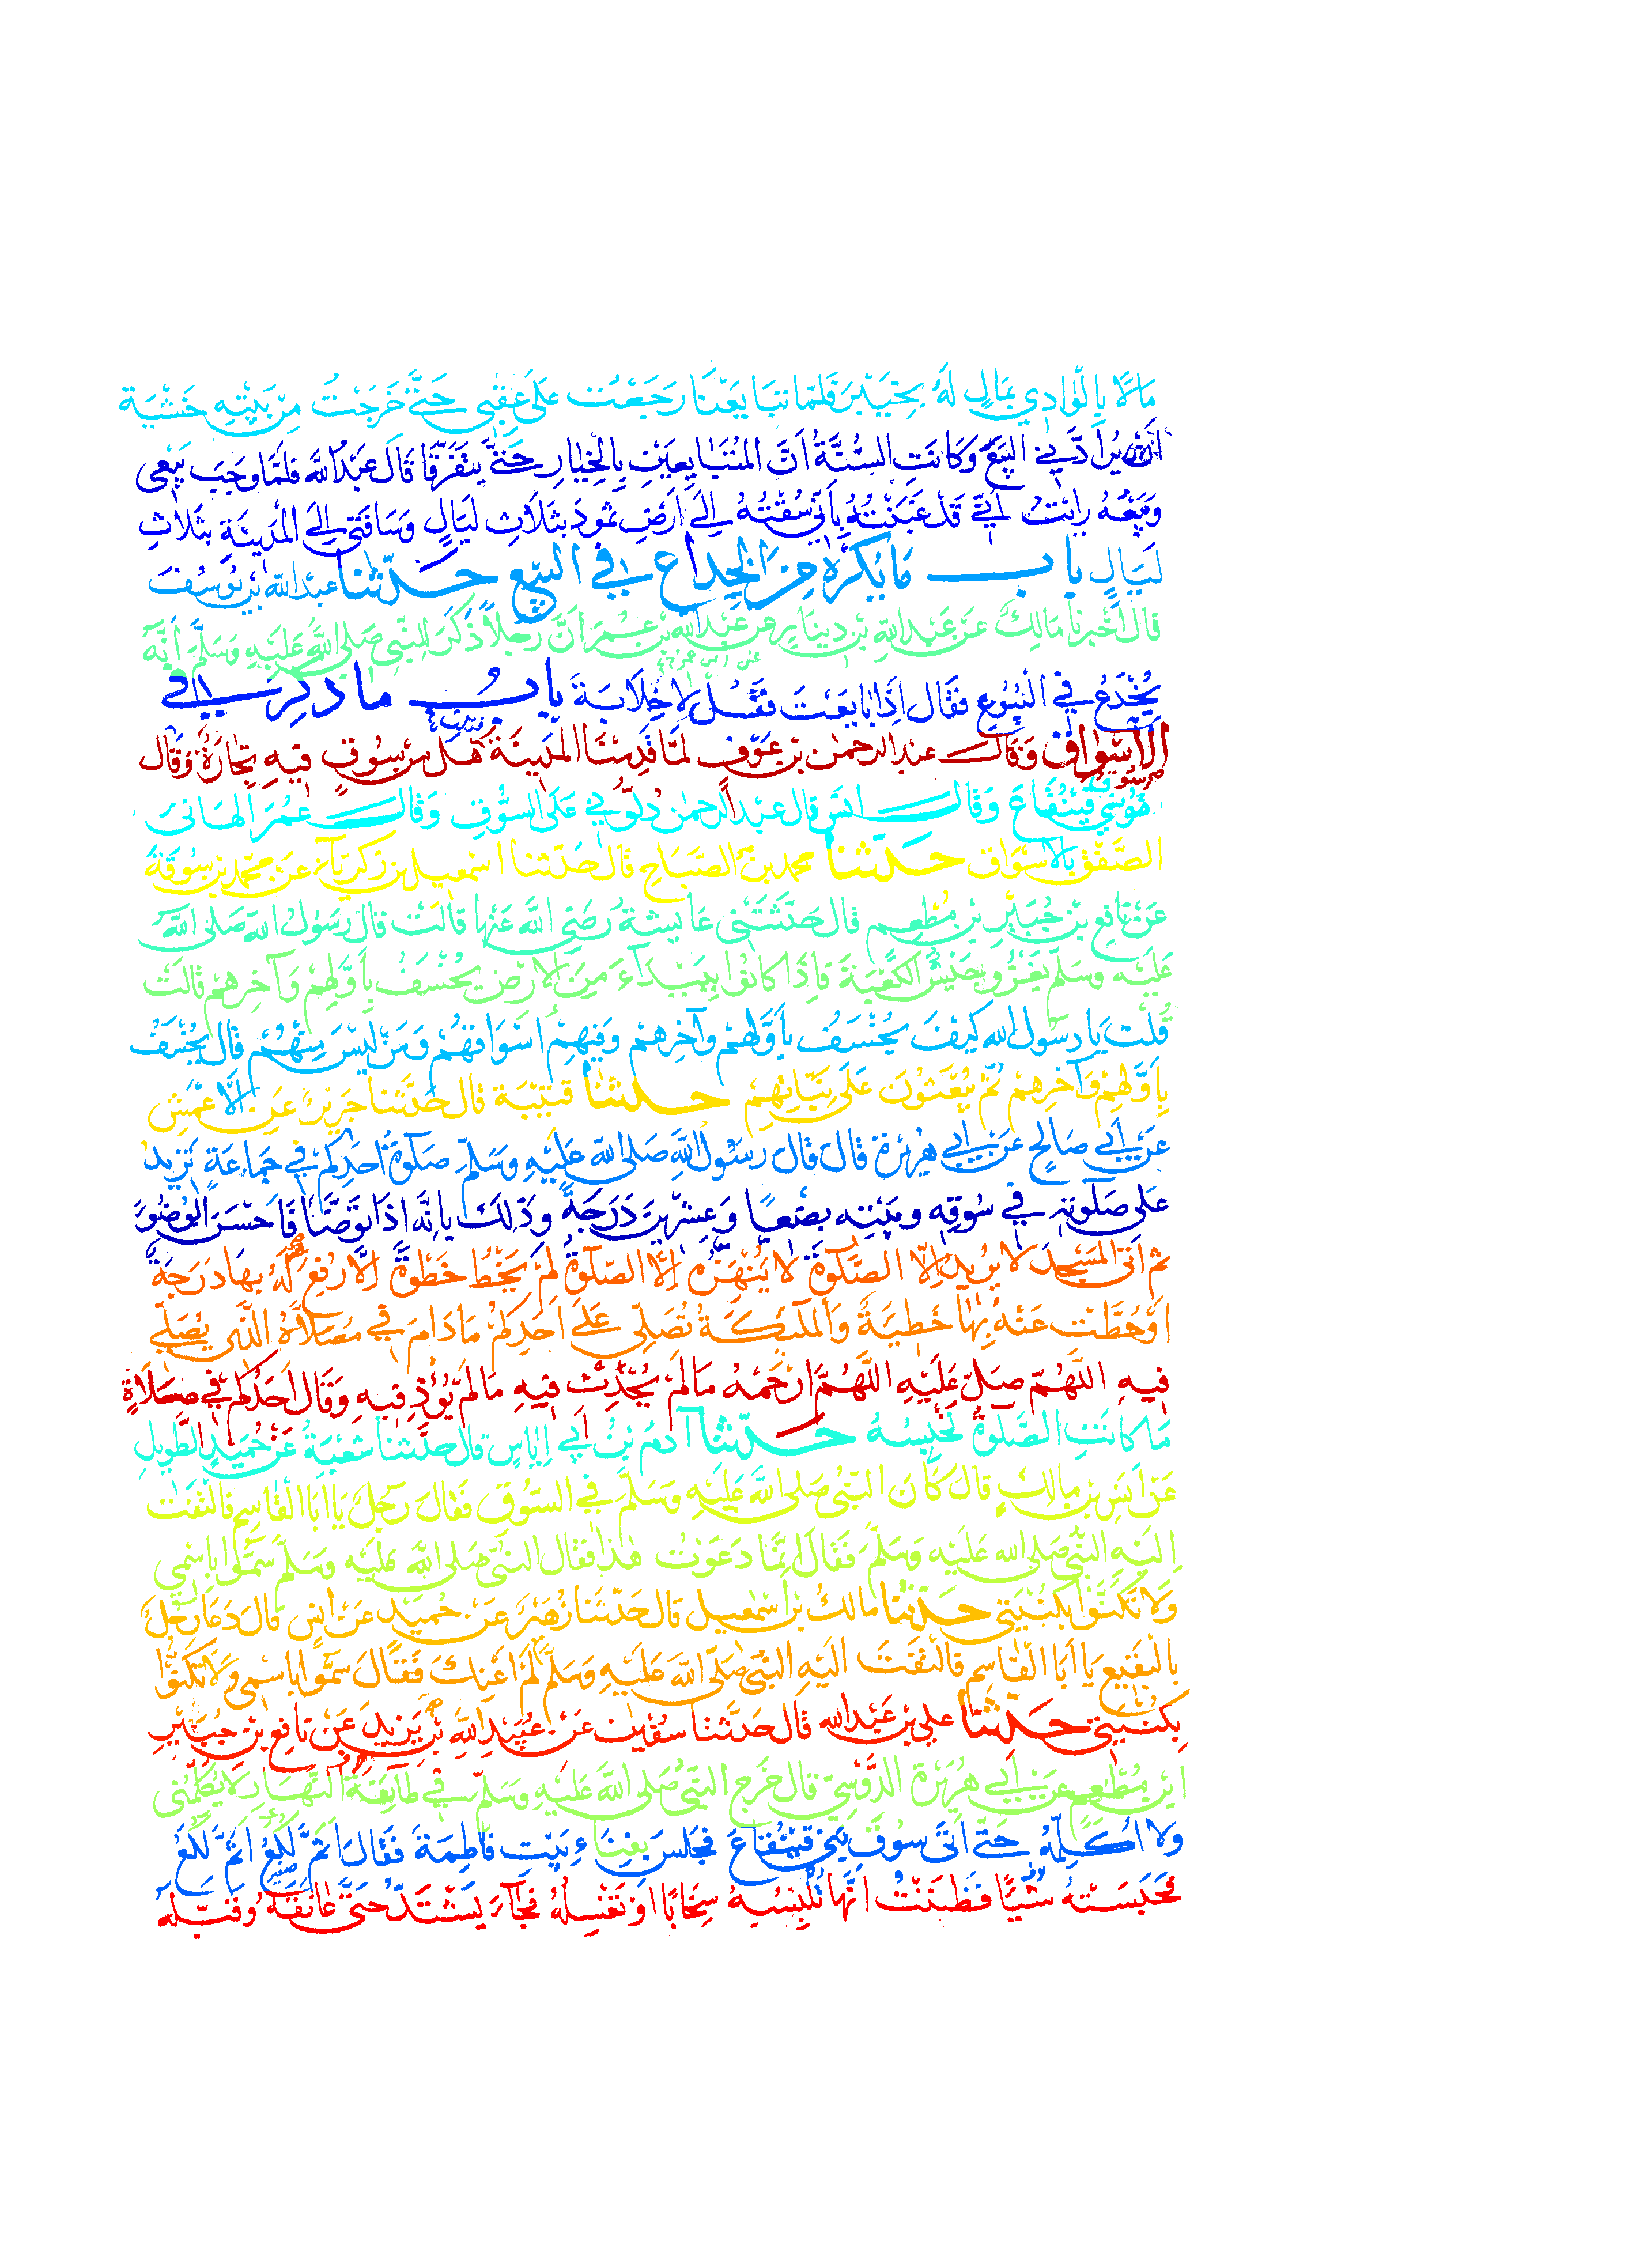 مَالًا بِالْوَادِي بِمَالٍ لَهُ بِخَيْبَرَ فَلَمَّا تَبَايَعْنَا رَجَعْتُ عَلَى عَقِبِي حَتَّى خَرَجْتُ مِنْ بَيْتِهِ خَشْيَةَ
اَنْ يُرَادَّنِي الْبَيْعَ وَكَانَتِ السُّنَّةُ اَنَّ الْمُتَبَايِعَيْنِ بِالْخِيَارِ حَتَّى يَتَفَرَّقَا قَالَ عَبْدُ اللّٰهِ فَلَمَّا وَجَبَ بَيْعِي
وَبَيْعُهُ رَاَيْتُ اَنِّي قَدْ غَبَنْتُهُ بِاَنِّي سُقْتُهُ اِلَى اَرْضِ ثَمُودَ بِثَلَاثِ لَيَالٍ وَسَاقَنِي اِلَى الْمَدِينَةِ بِثَلَاثِ
لَيَالٍ بَابُ مَا يُكْرَهُ مِنَ الْخِدَاعِ فِي الْبَيْعِ حَدَّثَنَا عَبْدُ اللّٰهِ بْنُ يُوسُفَ
قَالَ اَخْبَرَنَا مَالِكٌ عَنْ عَبْدِ اللّٰهِ بْنِ دِينَارٍ عَنْ عَبْدِ اللّٰهِ بْنِ عُمَرَ اَنَّ رَجُلًا ذَكَرَ لِلنَّبِيِّ صَلَّى اللّٰهُ عَلَيْهِ وَسَلَّمَ اَنَّهُ
يُخْدَعُ فِي الْبُيُوعِ فَقَالَ اِذَا بَايَعْتَ فَقُلْ لَا خِلَابَةَ بَابُ مَا ذُكِرَ فِي
الْاَسْوَاقِ وَقَالَ عَبْدُ الرَّحْمٰنِ بْنُ عَوْفٍ لَمَّا قَدِمْنَا الْمَدِينَةَ هَلْ مِنْ سُوقٍ فِيهِ تِجَارَةٌ وَقَالَ
سُوقُ قَيْنُقَاعَ وَقَالَ اَنَسٌ قَالَ عَبْدُ الرَّحْمٰنِ دُلُّونِي عَلَى السُّوقِ وَقَالَ عُمَرُ اَلْهَانِيَ
الصَّفْقُ بِالْاَسْوَاقِ حَدَّثَنَا مُحَمَّدُ بْنُ الصَّبَّاحِ قَالَ حَدَّثَنَا اِسْمٰعِيلُ بْنُ زَكَرِيَّاءَ عَنْ مُحَمَّدِ بْنِ سُوقَةَ
عَنْ نَافِعِ بْنِ جُبَيْرِ بْنِ مُطْعِمٍ قَالَ حَدَّثَتْنِي عَايِشَةُ رَضِيَ اللّٰهُ عَنْهَا قَالَتْ قَالَ رَسُولُ اللّٰهِ صَلَّى اللّٰهُ
عَلَيْهِ وَسَلَّمَ يَغْزُو جَيْشٌ الْكَعْبَةَ فَاِذَا كَانُوا بِبَيْدَآءَ مِنَ الْاَرْضِ يُخْسَفُ بِاَوَّلِهِمْ وَآخِرِهِمْ قَالَتْ
قُلْتُ يَا رَسُولَ اللّٰهِ كَيْفَ يُخْسَفُ بِاَوَّلِهِمْ وَآخِرِهِمْ وَفِيهِمْ اَسْوَاقُهُمْ وَمَنْ لَيْسَ مِنْهُمْ قَالَ يُخْسَفُ
بِاَوَّلِهِمْ وَآخِرِهِمْ ثُمَّ يُبْعَثُونَ عَلَى نِيَّاتِهِمْ حَدَّثَنَا قُتَيْبَةُ قَالَ حَدَّثَنَا جَرِيرٌ عَنِ الْاَعْمَشِ
عَنْ اَبِي صَالِحٍ عَنْ اَبِي هُرَيْرَةَ قَالَ قَالَ رَسُولُ اللّٰهِ صَلَّى اللّٰهُ عَلَيْهِ وَسَلَّمَ صَلٰوةُ اَحَدِكُمْ فِي جَمَاعَةٍ تَزِيدُ
عَلَى صَلٰوتِهِ فِي سُوقِهِ وَبَيْتِهِ بِضْعًا وَعِشْرِينَ دَرَجَةً وَذٰلِكَ بِاَنَّهُ اِذَا تَوَضَّاَ فَاَحْسَنَ الْوُضُوءَ
ثُمَّ اَتَى الْمَسْجِدَ لَا يُرِيدُ اِلَّا الصَّلٰوةَ لَا يَنْهَزُهُ اِلَّا الصَّلٰوةُ لَمْ يَخْطُ خَطْوَةً اِلَّا رُفِعَ لَهُ بِهَا دَرَجَةٌ
اَوْ حُطَّتْ عَنْهُ بِهَا خَطِيئَةٌ وَالْمَلٰئِكَةُ تُصَلِّي عَلَى اَحَدِكُمْ مَا دَامَ فِي مُصَلَّاهُ الَّذِي يُصَلِّي
فِيهِ اللّٰهُمَّ صَلِّ عَلَيْهِ اللّٰهُمَّ ارْحَمْهُ مَا لَمْ يُحْدِثْ فِيهِ مَا لَمْ يُؤْذِ فِيهِ وَقَالَ اَحَدُكُمْ فِي صَلَاةٍ
مَا كَانَتِ الصَّلٰوةُ تَحْبِسُهُ حَدَّثَنَا آدَمُ بْنُ اَبِي اِيَاسٍ قَالَ حَدَّثَنَا شُعْبَةُ عَنْ حُمَيْدٍ الطَّوِيلِ
عَنْ اَنَسِ بْنِ مَالِكٍ قَالَ كَانَ النَّبِيُّ صَلَّى اللّٰهُ عَلَيْهِ وَسَلَّمَ فِي السُّوقِ فَقَالَ رَجُلٌ يَا اَبَا الْقَاسِمِ فَالْتَفَتَ
اِلَيْهِ النَّبِيُّ صَلَّى اللّٰهُ عَلَيْهِ وَسَلَّمَ فَقَالَ اِنَّمَا دَعَوْتُ هٰذَا فَقَالَ النَّبِيُّ صَلَّى اللّٰهُ عَلَيْهِ وَسَلَّمَ سَمُّوا بِاسْمِي
وَلَا تَكَنَّوْا بِكُنْيَتِي حَدَّثَنَا مَالِكُ بْنُ اِسْمٰعِيلَ قَالَ حَدَّثَنَا زُهَيْرٌ عَنْ حُمَيْدٍ عَنْ اَنَسٍ قَالَ دَعَا رَجُلٌ
بِالْبَقِيعِ يَا اَبَا الْقَاسِمِ فَالْتَفَتَ اِلَيْهِ النَّبِيُّ صَلَّى اللّٰهُ عَلَيْهِ وَسَلَّمَ لَمْ اَعْنِكَ فَقَالَ سَمُّوا بِاسْمِي وَلَا تَكَنَّوْا
بِكُنْيَتِي حَدَّثَنَا عَلِيُّ بْنُ عَبْدِ اللّٰهِ قَالَ حَدَّثَنَا سُفْيٰنُ عَنْ عُبَيْدِ اللّٰهِ بْنِ يَزِيدَ عَنْ نَافِعِ بْنِ جُبَيْرِ
ابْنِ مُطْعِمٍ عَنْ اَبِي هُرَيْرَةَ الدَّوْسِيِّ قَالَ خَرَجَ النَّبِيُّ صَلَّى اللّٰهُ عَلَيْهِ وَسَلَّمَ فِي طَائِفَةِ النَّهَارِ لَا يُكَلِّمُنِي
وَلَا اُكَلِّمُهُ حَتَّى اَتَى سُوقَ بَنِي قَيْنُقَاعَ فَجَلَسَ بِفِنَاءِ بَيْتِ فَاطِمَةَ فَقَالَ اَثَمَّ لُكَعُ اَثَمَّ لُكَعُ
فَحَبَسَتْهُ شَيْئًا فَظَنَنْتُ اَنَّهَا تُلْبِسُهُ سِخَابًا اَوْ تُغَسِّلُهُ فَجَآءَ يَشْتَدُّ حَتَّى عَانَقَهُ وَقَبَّلَهُ